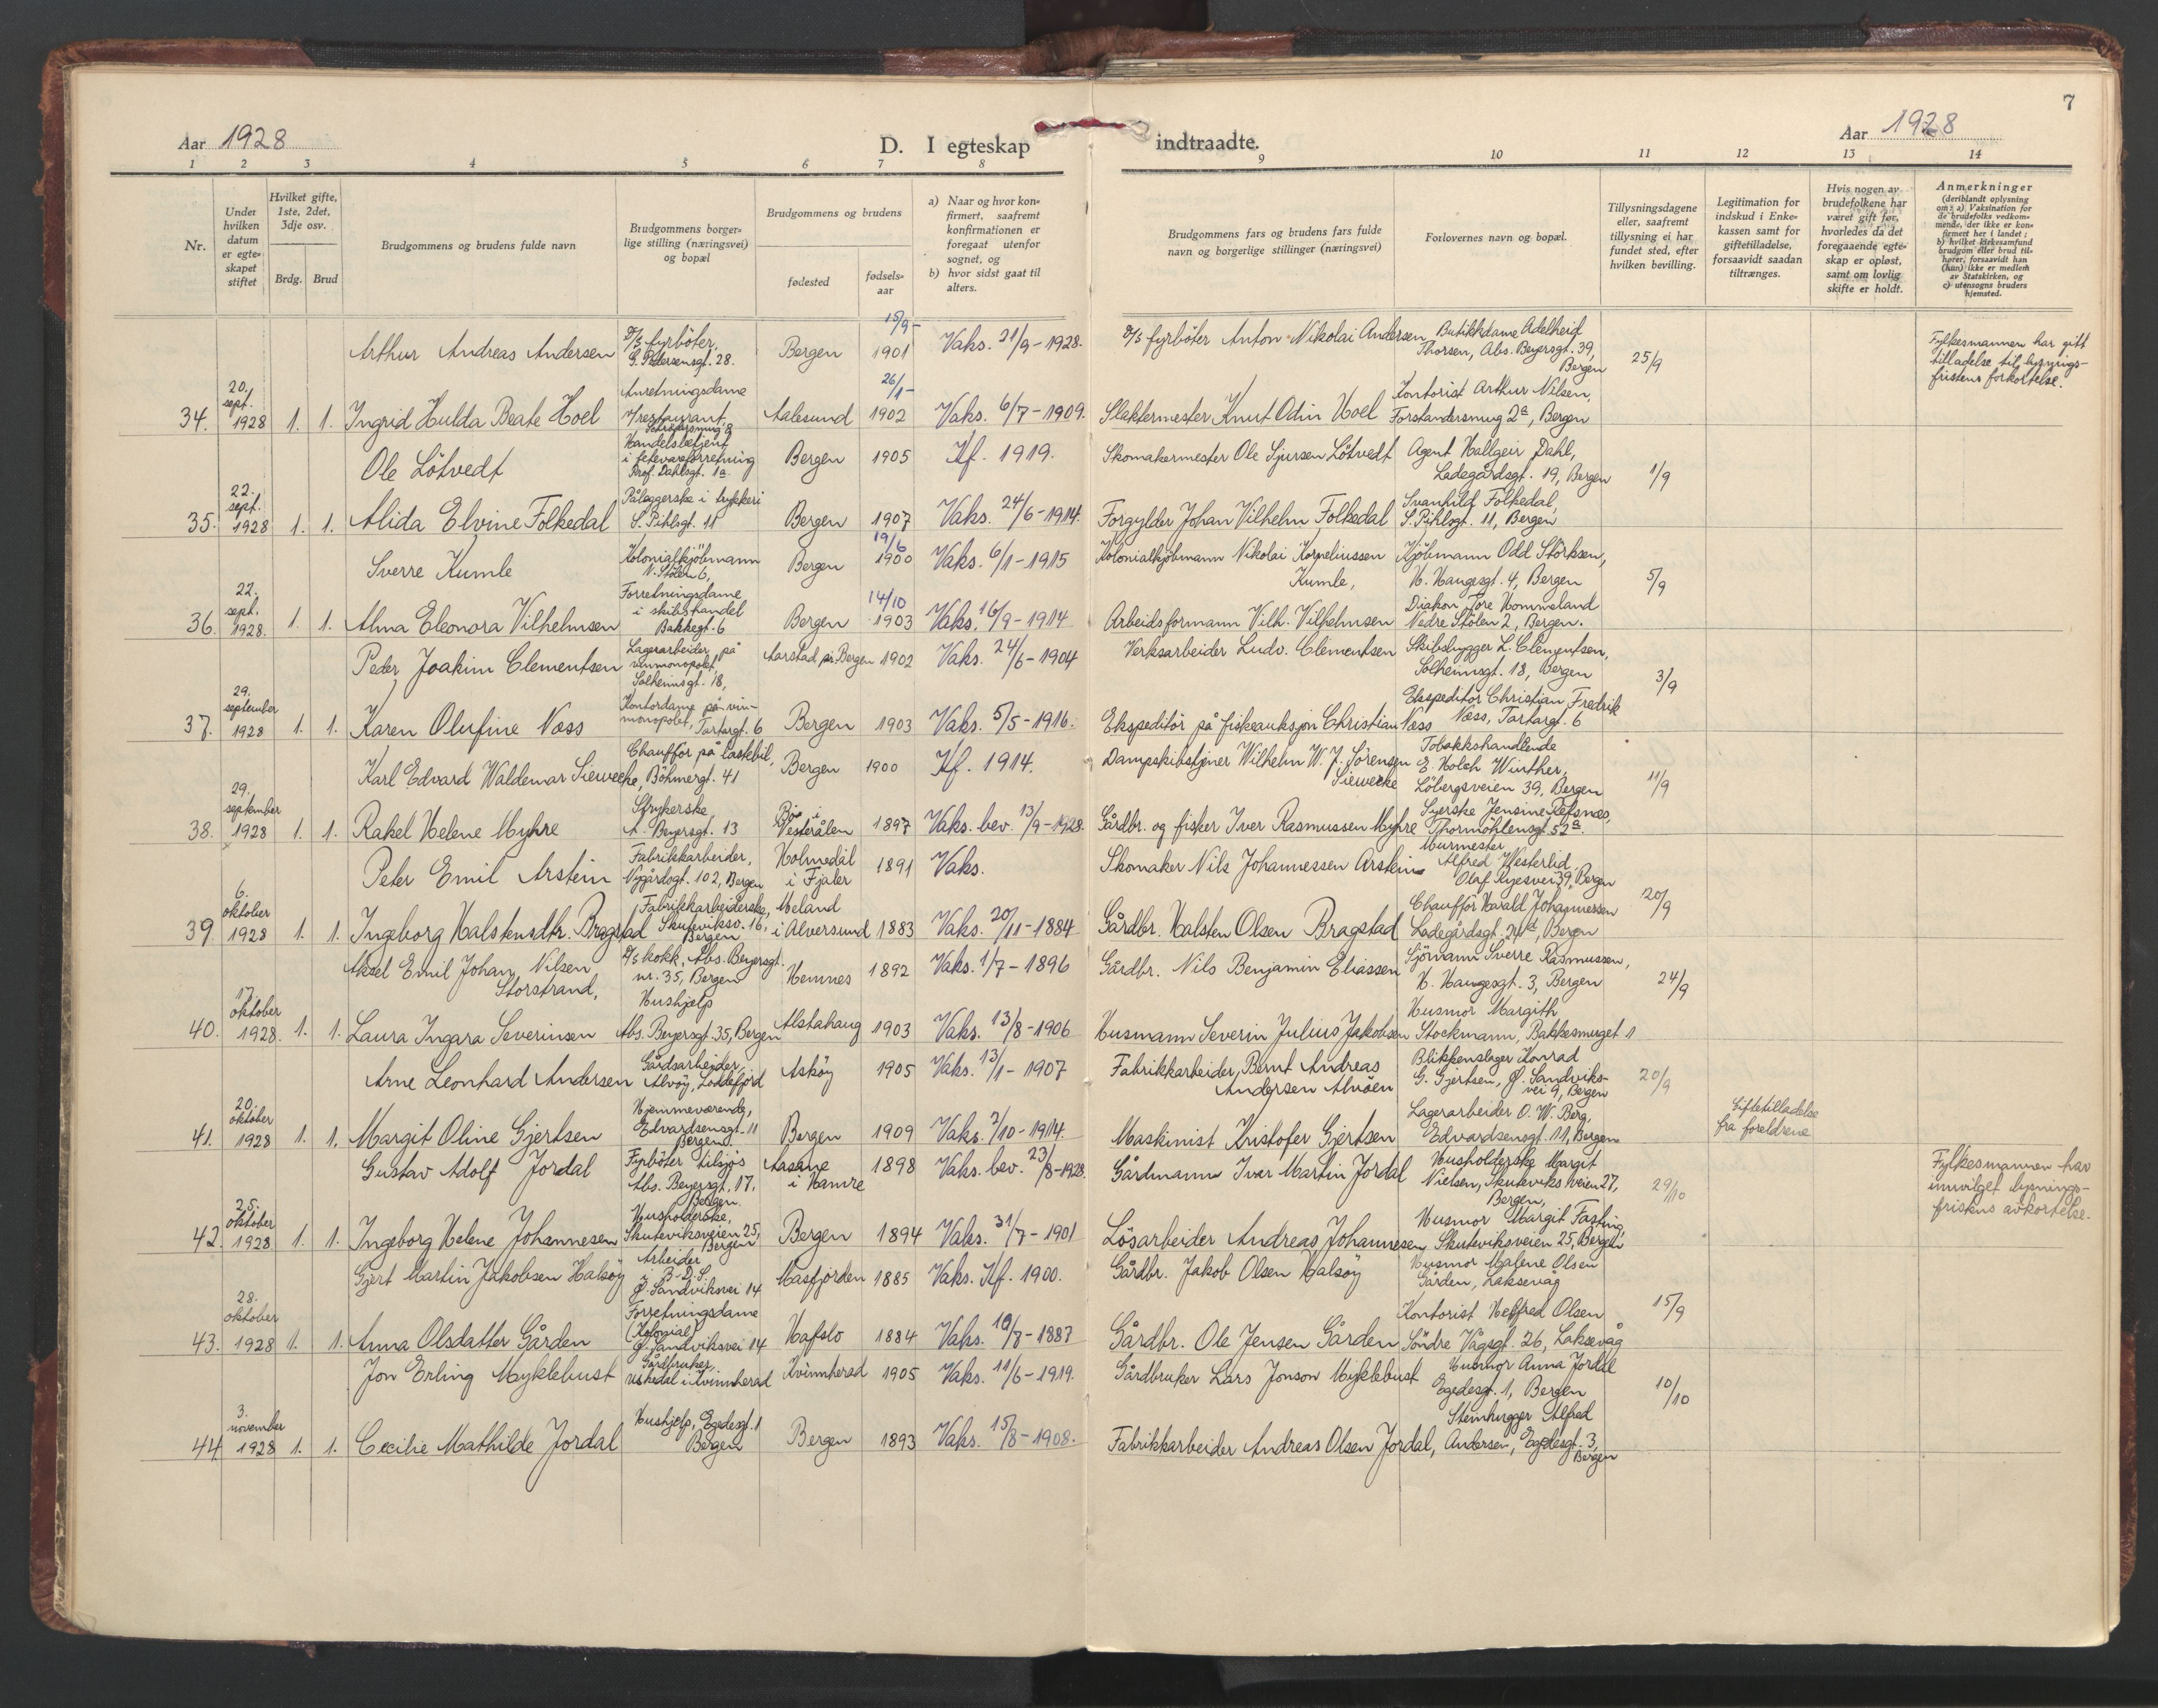 7
Aar 1928
D. I egteskap indtraadte.
Aar 1928
1 2 3 4 5 6 7 8 9 10 11 12 13 14
Nr.
Under hvilken datum er egteskapet stiftet
Hvilket gifte, 1ste, 2det, 3dje osv.
Brdg. Brud
Brudgommens og brudens fulde navn
Brudgommens borgerlige stilling (næringsvei) og bopæl
Brudgommens og brudens
fødested
fødselsaar
a) Naar og hvor konfirmert, saafremt konfirmationen er foregaat utenfor sognet, og
b) hvor sidst gaat til alters.
Brudgommens fars og brudens fars fulde navn og borgerlige stillinger (næringsvei)
Forlovernes navn og bopæl.
Tillysningsdagene eller, saafremt tillysning ei har fundet sted, efter hvilken bevilling.
Legitimation for indskud i Enkekassen samt for giftetilladelse, forsaavidt saadan tiltrænges.
Hvis nogen av brudefolkene har været gift før, hvorledes da det foregaaende egteskap er opløst, samt om lovlig skifte er holdt.
Anmerkninger (deriblandt oplysning om: a) Vaksination for de brudefolks vedkommende, der ikke er konfirmert her i landet; b) hvilket kirkesamfund brudgom eller brud tilhører, forsaavidt han (hun) ikke er medlem av Statskirken, og c) utensogns bruders hjemsted.
Arthur Andreas Andersen D/s fyrböter, G. Pedersensgt. 28. Bergen 15/9- 1901 Vaks. 21/9-1928. D/s fyrböter Anton Nikolai Andersen Butikkdame Adelheid Thorsen, Abs. Beyersgt. 39, Bergen 25/9 Fylkesmannen har gitt tilladelse til lysnings-fristens forkortelse.
34. 20. sept. 1928 1. 1. Ingrid Hulda Beate Hoel Anretningsdame i restaurant. Aalesund 26/1- 1902 Vaks. 6/7-1909. Slaktermester Knut Odin Hoel Kontorist Arthur Nilsen, Forstandersmug 2a, Bergen
Ole Lötvedt Handelsbetjent i fetevareforretning Prof. Dahlsgt. 1a Bergen 1905 Kf. 1919. Skomakermester Ole Sjursen Lötvedt Agent Hallgeir Dahl, Ladegårdsgt. 19, Bergen 1/9
35. 22. sept. 1928 1. 1. Alida Elvine Folkedal Påleggerske i trykkeri S. Pihlsgt. 11 Bergen 1907 Vaks. 24/6-1914. Forgylder Johan Vilhelm Folkedal Svanhild Folkedal, S. Pihlsgt. 11, Bergen
Sverre Kumle Kolonialkjöbmann N. Stölen 6, Bergen 19/6 1900 Vaks. 6/1-1915 Kolonialkjöbmann Nikolai Korneliussen Kumle, Kjöbmann Odd Störksen, H. Haugesgt. 4, Bergen 5/9
36. 22. sept. 1928. 1. 1. Alma Eleonora Vilhelmsen Forretningsdame i skibshandel Bakkegt. 6 Bergen 14/10 1903 Vaks. 16/9-1914 Arbeidsformann Vilh. Vilhelmsen Diakon Tore Hommeland Nedre Stölen 2, Bergen.
Peder Joakim Clementsen Lagerarbeider på vinmonopolet, Solheimsgt. 18, Aarstad, pr. Bergen 1902 Vaks. 24/6-1904 Verksarbeider Ludv. Clementsen Skibsbygger L. Clementsen, Solheimsgt. 18, Bergen 3/9
37. 29. september 1928 1. 1. Karen Olufine Næss Kontordame på vinmonopolet, Tartargt. 6 Bergen 1903 Vaks. 5/5-1916. Ekspeditör på fiskeauksjon Christian Næss Ekspeditör Christian Fredrik Næss, Tartargt. 6
Karl Edvard Waldemar Siewecke, Chauffør på lastebil, Böhmergt. 41 Bergen 1900 Kf. 1914. Dampskibstjener Wilhelm W. J. Sörensen Siewecke Tobakkshandlende E. Holch Winther, Löbergsveien 39, Bergen 11/9
38. 29. september 1928 1. 1. Rakel Helene Myhre Strykerske A. Beyersgt. 13 Bö i Vesterålen 1897 Vaks. bev. 13/9-1928. Gårdbr. og fisker Iver Rasmussen Myhre Syerske Jensine Refsnæs, Thormöhlensgt. 52a.
Peter Emil Arstein Fabrikkarbeider, Nygårdsgt. 102, Bergen Holmedal i Fjaler 1891 Vaks. Skomaker Nils Johannessen Arstein Murmester Alfred Westerlid Olaf Ryesvei 39, Bergen 20/9
39. 6. oktober 1928 1. 1. Ingeborg Halstensdtr. Bragstad Fabrikkarbeiderske, Skuteviksv. 16, Bergen Meland i Alversund 1883 Vaks. 20/11-1884 Gårdbr. Halsten Olsen Bragstad Chauffør Harald Johannessen Ladegårdsgt. 24, Bergen
Aksel Emil Johan Nilsen Storstrand, D/s kokk, Abs. Beyersgt. nr. 35, Bergen Hemnes 1892 Vaks. 1/7-1896 Gårdbr. Nils Benjamin Eliassen Sjömann Sverre Rasmussen, H. Haugesgt. 3, Bergen 24/9
40. 17. oktober 1928. 1. 1. Laura Ingara Severinsen Hushjelp Abs. Beyersgt. 35, Bergen Alstahaug 1903 Vaks. 13/8-1906 Husmann Severin Julius Jakobsen Husmor Margith Stockmann, Bakkesmuget 11
Arne Leonhard Andersen Gårdsarbeider, Alvøy, Loddefjord Asköy 1905 Vaks. 13/1-1907 Fabrikkarbeider, Bernt Andreas Andersen Alvöen Blikkenslager Konrad G. Gjertsen, Ø. Sandviksvei 9, Bergen 20/9
41. 20. oktober 1928 1. 1. Margit Oline Gjertsen Hjemmeværende, Edvardsensgt. 11 Bergen. Bergen 1909 Vaks. 3/10-1914. Maskinist Kristofer Gjertsen Lagerarbeider O. W. Berg, Edvardsensgt. 11, Bergen Giftetilladelse fra foreldrene
Gustav Adolf Jordal Fyrböter tilsjös Abs. Beyersgt. 17, Bergen. Aasane i Hamre 1898 Vaks. bev. 23/8-1928. Gårdmann Ivar Martin Jordal Husholderske Margit Nielsen, Skuteviksveien 27, Bergen, 29/10 Fylkesmannen har innvilget lysnings-fristens avkortelse.
42. 25. oktober 1928 1. 1. Ingeborg Helene Johannesen Husholderske, Skuteviksveien 25, Bergen Bergen 1894 Vaks. 31/7-1901 Lösarbeider Andreas Johannesen Husmor Margit Fasting, Skuteviksveien 25, Bergen
Gjert Martin Jakobsen Halsöy Arbeider i B.D.S. Ø. Sandviksvei 14 Masfjorden 1885 Vaks. Kf. 1900. Gårdbr. Jakob Olsen Halsöy Husmor Malene Olsen Gården, Laksevåg 15/9
43. 28. oktober 1928 1. 1. Anna Olsdatter Gården Forretningsdame (Kolonial) Ø. Sandviksvei 14 Hafslo 1884 Vaks. 19/8-1887 Gårdbr. Ole Jensen Gården Kontorist Helfred Olsen Söndre Vågsgt. 26, Laksevåg
Jon Erling Myklebust Gårdbruker, Uskedal i Kvinnherad Kvinnherad 1905 Vaks. 11/6-1919. Gårdbruker Lars Jonson Myklebust Husmor Anna Jordal Egedesgt. 1, Bergen 10/10
44. 3. november 1928 1. 1. Cecilie Mathilde Jordal Hushjelp, Egedesgt. 1 Bergen Bergen 1893 Vaks. 15/8-1908. Fabrikkarbeider Andreas Olsen Jordal, Stenhugger Alfred Andersen, Egedesgt. 3, Bergen